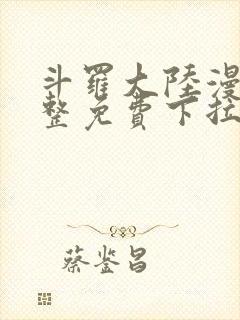 斗羅大陸漫
整免費下拉
蔡鉴昌